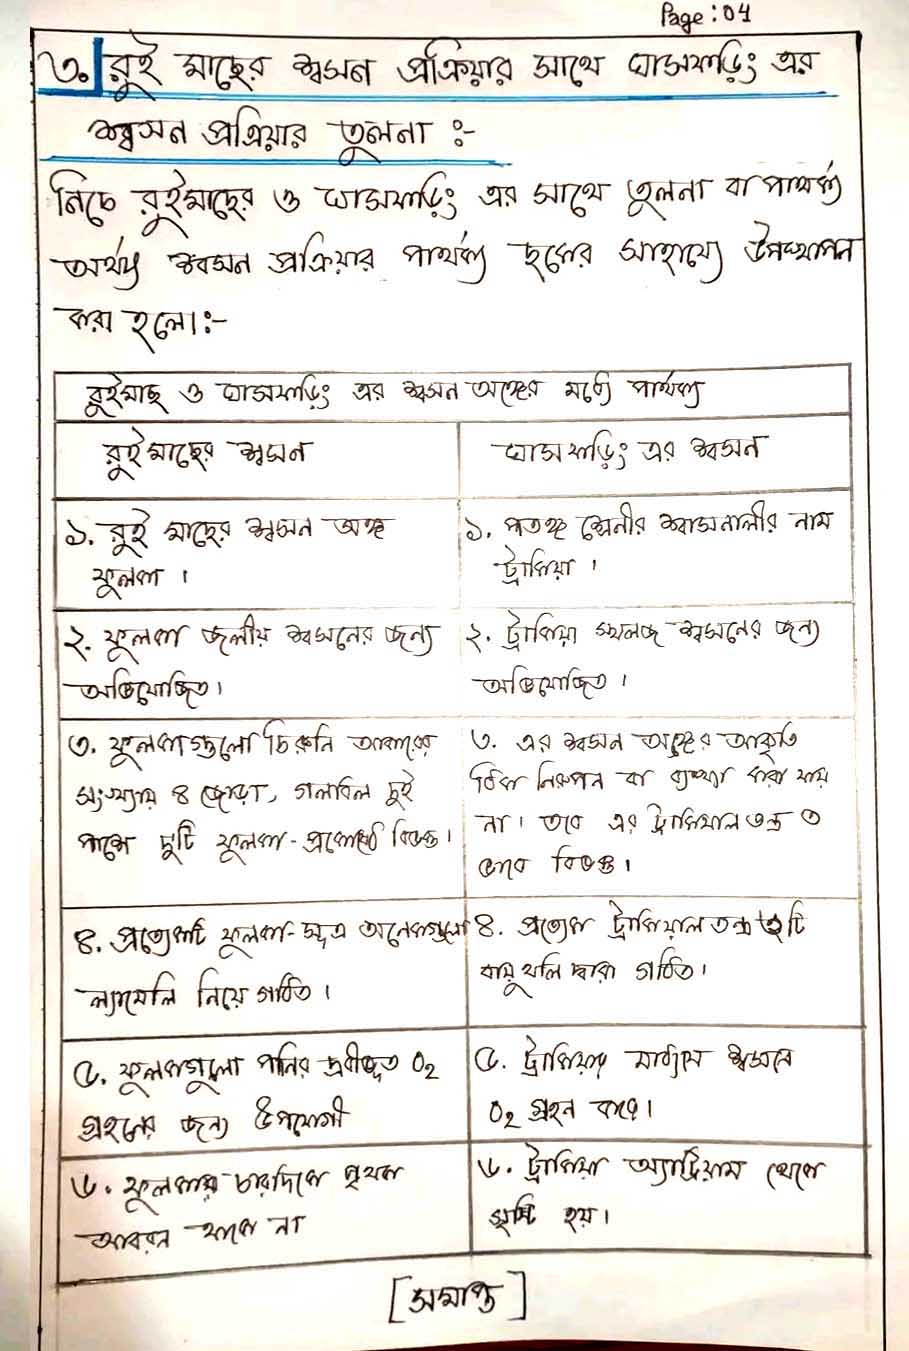 Page: 04
৩. রুই মাছের শ্বসন প্রক্রিয়ার সাথে ঘাসফড়িং এর
শ্বসন প্রক্রিয়ার তুলনা :-
নিচে রুইমাছের ও ঘাসফড়িং এর সাথে তুলনা বা পার্থক্য
অর্থাৎ শ্বসন প্রক্রিয়ার পার্থক্য ছকের সাহায্যে উপস্থাপন
করা হলো:-
রুইমাছ ও ঘাসফড়িং এর শ্বসন অঙ্গের মধ্যে পার্থক্য
রুইমাছের শ্বসন
ঘাসফড়িং এর শ্বসন
১. রুই মাছের শ্বসন অঙ্গ
ফুলকা ।
১. পতঙ্গ শ্রেনীর শ্বাসনালীর নাম
ট্রাকিয়া ।
২. ফুলকা জলীয় শ্বসনের জন্য
অভিযোজিত।
২. ট্রাকিয়া স্থলজ শ্বসনের জন্য
অভিযোজিত ।
৩. ফুলকাগুলো চিরুনি আকারের
সংখ্যায় ৪ জোড়া, গলবিল দুই
পাশে দুটি ফুলকা-প্রকোষ্ঠে বিভক্ত।
৩. এর শ্বসন অঙ্গের আকৃতি
ঠিক নিরুপন বা ব্যাখ্যা করা যায়
না। তবে এর ট্রাকিয়াল তন্ত্র ৩
ভাবে বিভক্ত।
৪. প্রত্যেকটি ফুলকা-সূত্র অনেকগুলো
ল্যামেলি নিয়ে গঠিত ।
৪. প্রত্যেক ট্রাকিয়াল তন্ত্র ২টি
বায়ু থলি দ্বারা গঠিত।
৫. ফুলকাগুলো পানির দ্রবীভূত O₂
গ্রহনের জন্য উপযোগী
৫. ট্রাকিয়ার মাধ্যমে শ্বসনে
O₂ গ্রহন করে।
৬. ফুলকার চারদিকে পৃথক
আবরন থাকে না
৬. ট্রাকিয়া অ্যাট্রিয়াম থেকে
সৃষ্টি হয়।
[সমাপ্ত]